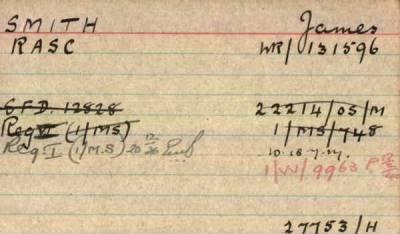 SMITH James
RASC WR/131596
S.F.D. 12828 22214/OS/M
Reg VI (1/MS) 1/MS/748
Reg I (1/M.S) 20 12/20
1/W/9963 P
27753/H